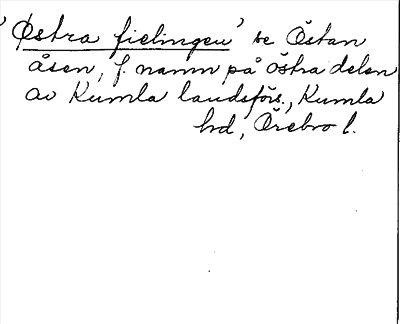 'Östra fielingen' se Östan
åsen, f. namn på östra delen
av Kumla landsförs., Kumla
hd, Örebro l.